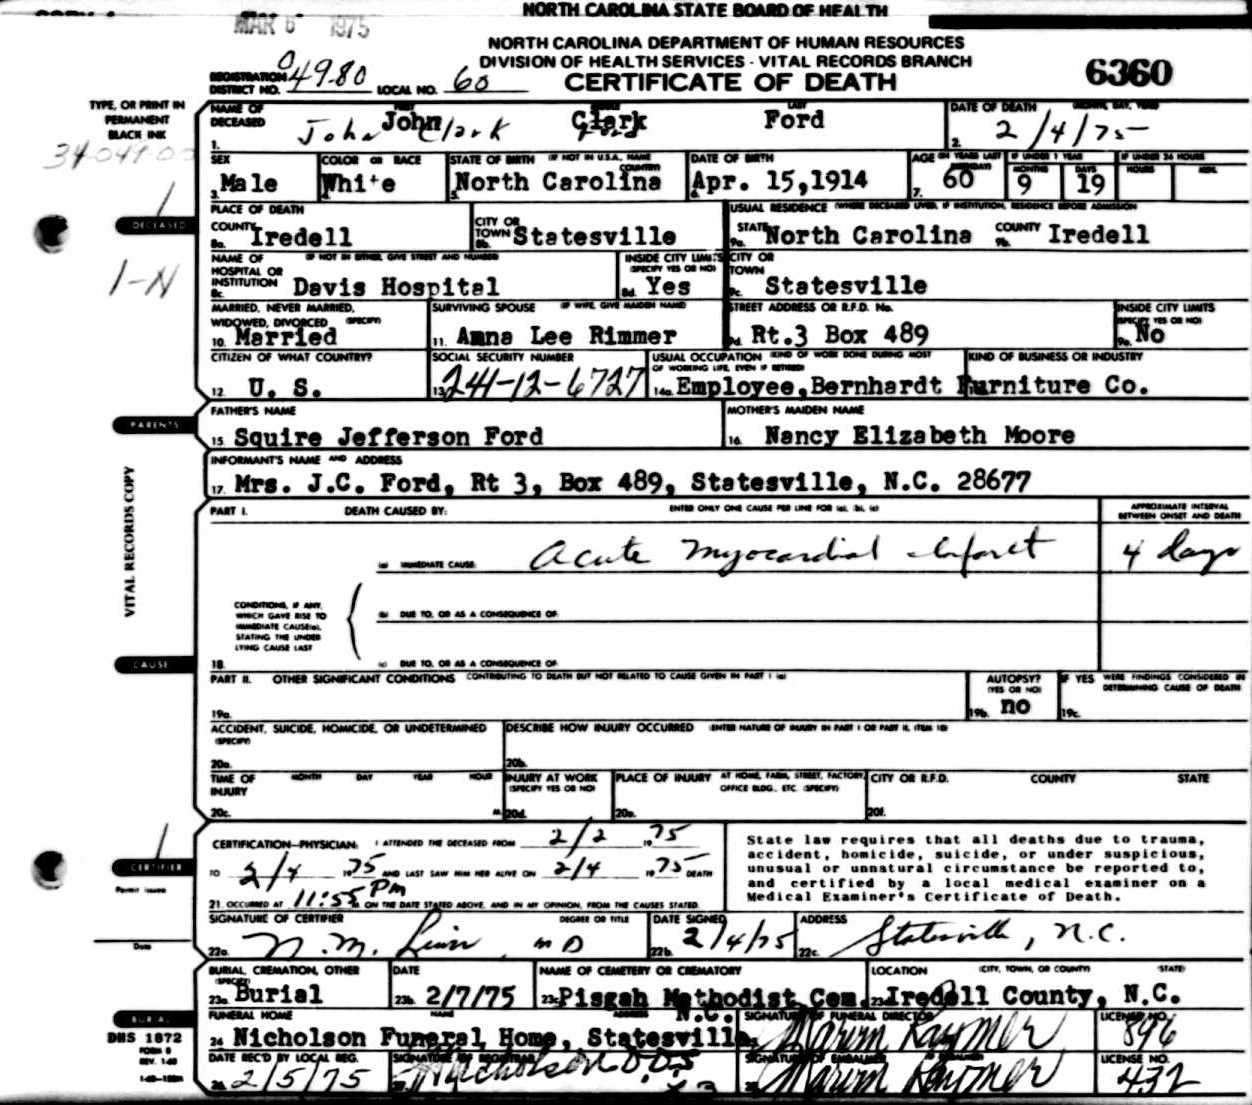 NORTH CAROLINA STATE BOARD OF HEALTH
MAR 6 1975
NORTH CAROLINA DEPARTMENT OF HUMAN RESOURCES
DIVISION OF HEALTH SERVICES - VITAL RECORDS BRANCH
CERTIFICATE OF DEATH
6360
REGISTRATION DISTRICT NO. 4980 LOCAL NO. 60
TYPE, OR PRINT IN
PERMANENT
BLACK INK
NAME OF DECEASED FIRST MIDDLE LAST
1. John Clark Ford
John Clark Ford
DATE OF DEATH (MONTH, DAY, YEAR)
2. 2/4/75
SEX
3. Male
COLOR OR RACE
4. White
STATE OF BIRTH (IF NOT IN U.S.A., NAME COUNTRY)
5. North Carolina
DATE OF BIRTH
6. Apr. 15,1914
AGE (IN YEARS LAST BIRTHDAY)
7. 60
IF UNDER 1 YEAR
MONTHS 9 DAYS 19
IF UNDER 24 HOURS
HOURS MIN.
DECEASED
1-N
PLACE OF DEATH
COUNTY
8a. Iredell
CITY OR TOWN
8b. Statesville
USUAL RESIDENCE (WHERE DECEASED LIVED, IF INSTITUTION, RESIDENCE BEFORE ADMISSION)
STATE
9a. North Carolina
COUNTY
9b. Iredell
NAME OF HOSPITAL OR INSTITUTION (IF NOT IN EITHER, GIVE STREET AND NUMBER)
8c. Davis Hospital
INSIDE CITY LIMITS (SPECIFY YES OR NO)
8d. Yes
CITY OR TOWN
9c. Statesville
MARRIED, NEVER MARRIED, WIDOWED, DIVORCED (SPECIFY)
10. Married
SURVIVING SPOUSE (IF WIFE, GIVE MAIDEN NAME)
11. Anna Lee Rimmer
STREET ADDRESS OR R.F.D. No.
9d. Rt.3 Box 489
INSIDE CITY LIMITS (SPECIFY YES OR NO)
9e. No
CITIZEN OF WHAT COUNTRY?
12. U. S.
SOCIAL SECURITY NUMBER
13. 241-12-6727
USUAL OCCUPATION (KIND OF WORK DONE DURING MOST OF WORKING LIFE, EVEN IF RETIRED)
KIND OF BUSINESS OR INDUSTRY
14a. Employee,Bernhardt Furniture Co.
PARENTS
FATHER'S NAME
15. Squire Jefferson Ford
MOTHER'S MAIDEN NAME
16. Nancy Elizabeth Moore
INFORMANT'S NAME AND ADDRESS
17. Mrs. J.C. Ford, Rt 3, Box 489, Statesville, N.C. 28677
VITAL RECORDS COPY
PART I. DEATH CAUSED BY: ENTER ONLY ONE CAUSE PER LINE FOR (a), (b), (c)
APPROXIMATE INTERVAL BETWEEN ONSET AND DEATH
(a) IMMEDIATE CAUSE: Acute Myocardial Infarct 4 days
CONDITIONS, IF ANY,
WHICH GAVE RISE TO
IMMEDIATE CAUSE(a),
STATING THE UNDER
LYING CAUSE LAST
(b) DUE TO, OR AS A CONSEQUENCE OF:
18. (c) DUE TO, OR AS A CONSEQUENCE OF:
CAUSE
PART II. OTHER SIGNIFICANT CONDITIONS CONTRIBUTING TO DEATH BUT NOT RELATED TO CAUSE GIVEN IN PART I (a)
19a.
AUTOPSY? (YES OR NO)
19b. no
IF YES WERE FINDINGS CONSIDERED IN DETERMINING CAUSE OF DEATH
19c.
ACCIDENT, SUICIDE, HOMICIDE, OR UNDETERMINED (SPECIFY)
20a.
DESCRIBE HOW INJURY OCCURRED (ENTER NATURE OF INJURY IN PART I OR PART II, ITEM 18)
20b.
TIME OF INJURY MONTH DAY YEAR HOUR
20c. M.
INJURY AT WORK (SPECIFY YES OR NO)
20d.
PLACE OF INJURY AT HOME, FARM, STREET, FACTORY, OFFICE BLDG., ETC. (SPECIFY)
20e.
CITY OR R.F.D. COUNTY STATE
20f.
CERTIFIER
Permit Issued
Date
CERTIFICATION—PHYSICIAN: I ATTENDED THE DECEASED FROM 2/2 1975
TO 2/4 1975 AND LAST SAW HIM HER ALIVE ON 2/4 1975 DEATH
21. OCCURRED AT 11:55 PM ON THE DATE STATED ABOVE, AND IN MY OPINION, FROM THE CAUSES STATED.
State law requires that all deaths due to trauma,
accident, homicide, suicide, or under suspicious,
unusual or unnatural circumstance be reported to,
and certified by a local medical examiner on a
Medical Examiner's Certificate of Death.
SIGNATURE OF CERTIFIER DEGREE OR TITLE
22a. MD
DATE SIGNED
22b. 2/4/75
ADDRESS
22c. Statesville, N.C.
BURIAL, CREMATION, OTHER (SPECIFY)
23a. Burial
DATE
23b. 2/7/75
NAME OF CEMETERY OR CREMATORY
23c. Pisgah Methodist Cem.
LOCATION (CITY, TOWN, OR COUNTY) (STATE)
23d. Iredell County, N.C.
BURIAL
DHS 1872
FORM 8
REV. 1-68
FUNERAL HOME NAME ADDRESS
24. Nicholson Funeral Home, Statesville, N.C.
SIGNATURE OF FUNERAL DIRECTOR
Marvin Raymer
LICENSE NO.
896
DATE REC'D BY LOCAL REG.
2/5/75
SIGNATURE OF REGISTRAR
SIGNATURE OF EMBALMER
Marvin Raymer
LICENSE NO.
432